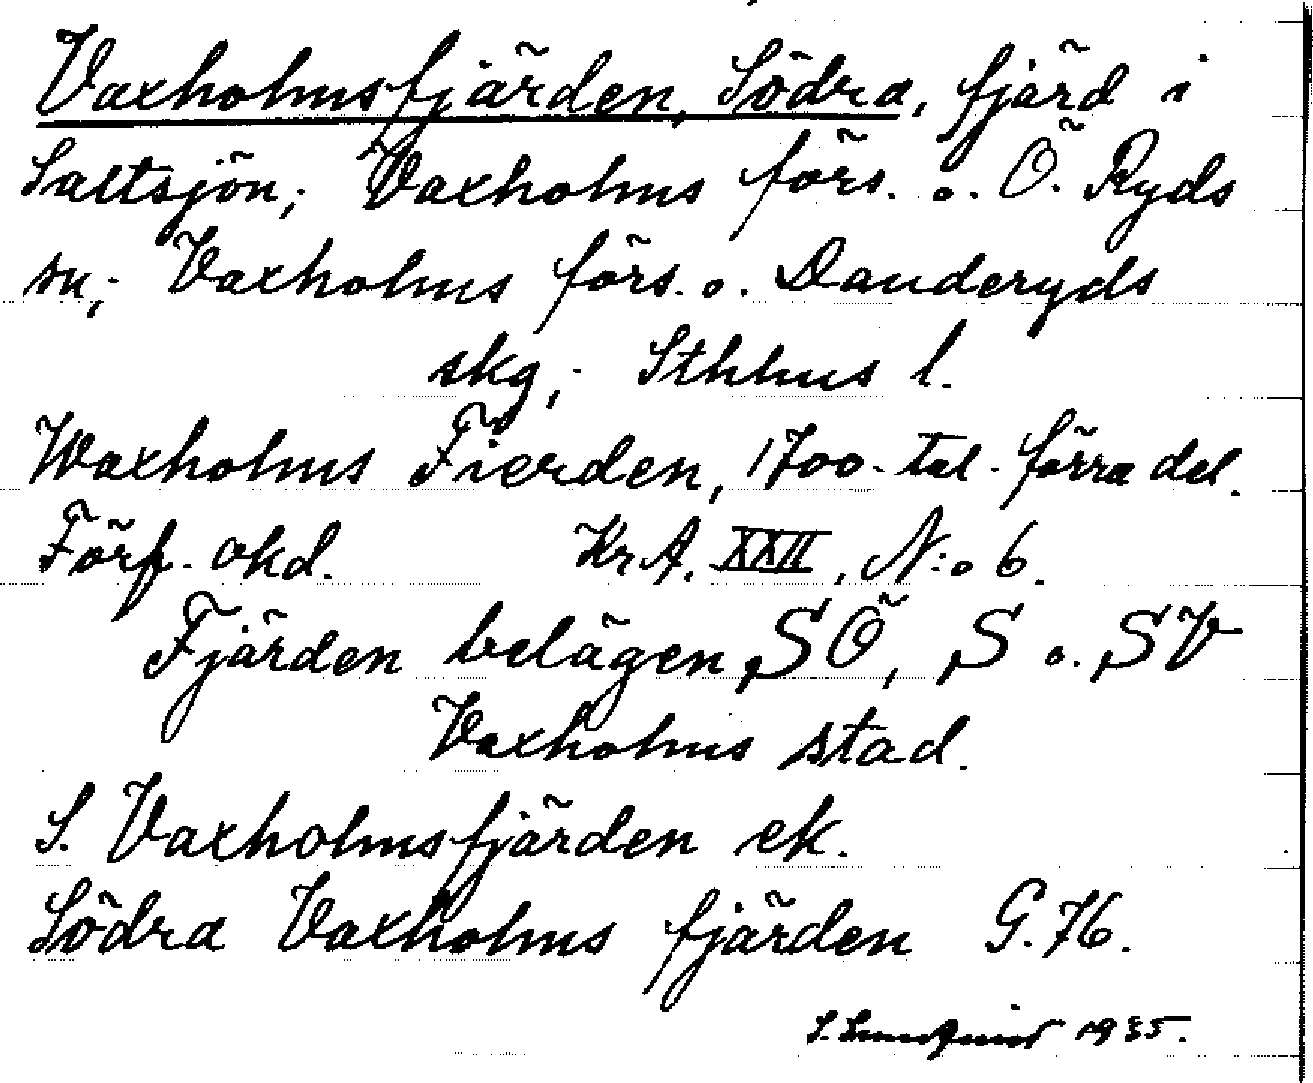 Vaxholmsfjärden, Södra, fjärd i
Saltsjön; Vaxholms förs. o. Ö. Ryds
sn; Vaxholms förs. o. Danderyds
skg; Sthlms l.
Waxholms Fierden, 1700-tal. förra del.
Förf. okd. KrA. XXII, N:o 6.
Fjärden belägen SÖ, S o. SV
Vaxholms stad.
S. Vaxholmsfjärden ek.
Södra Vaxholms fjärden G. 76.
S. Lundqvist 1935.